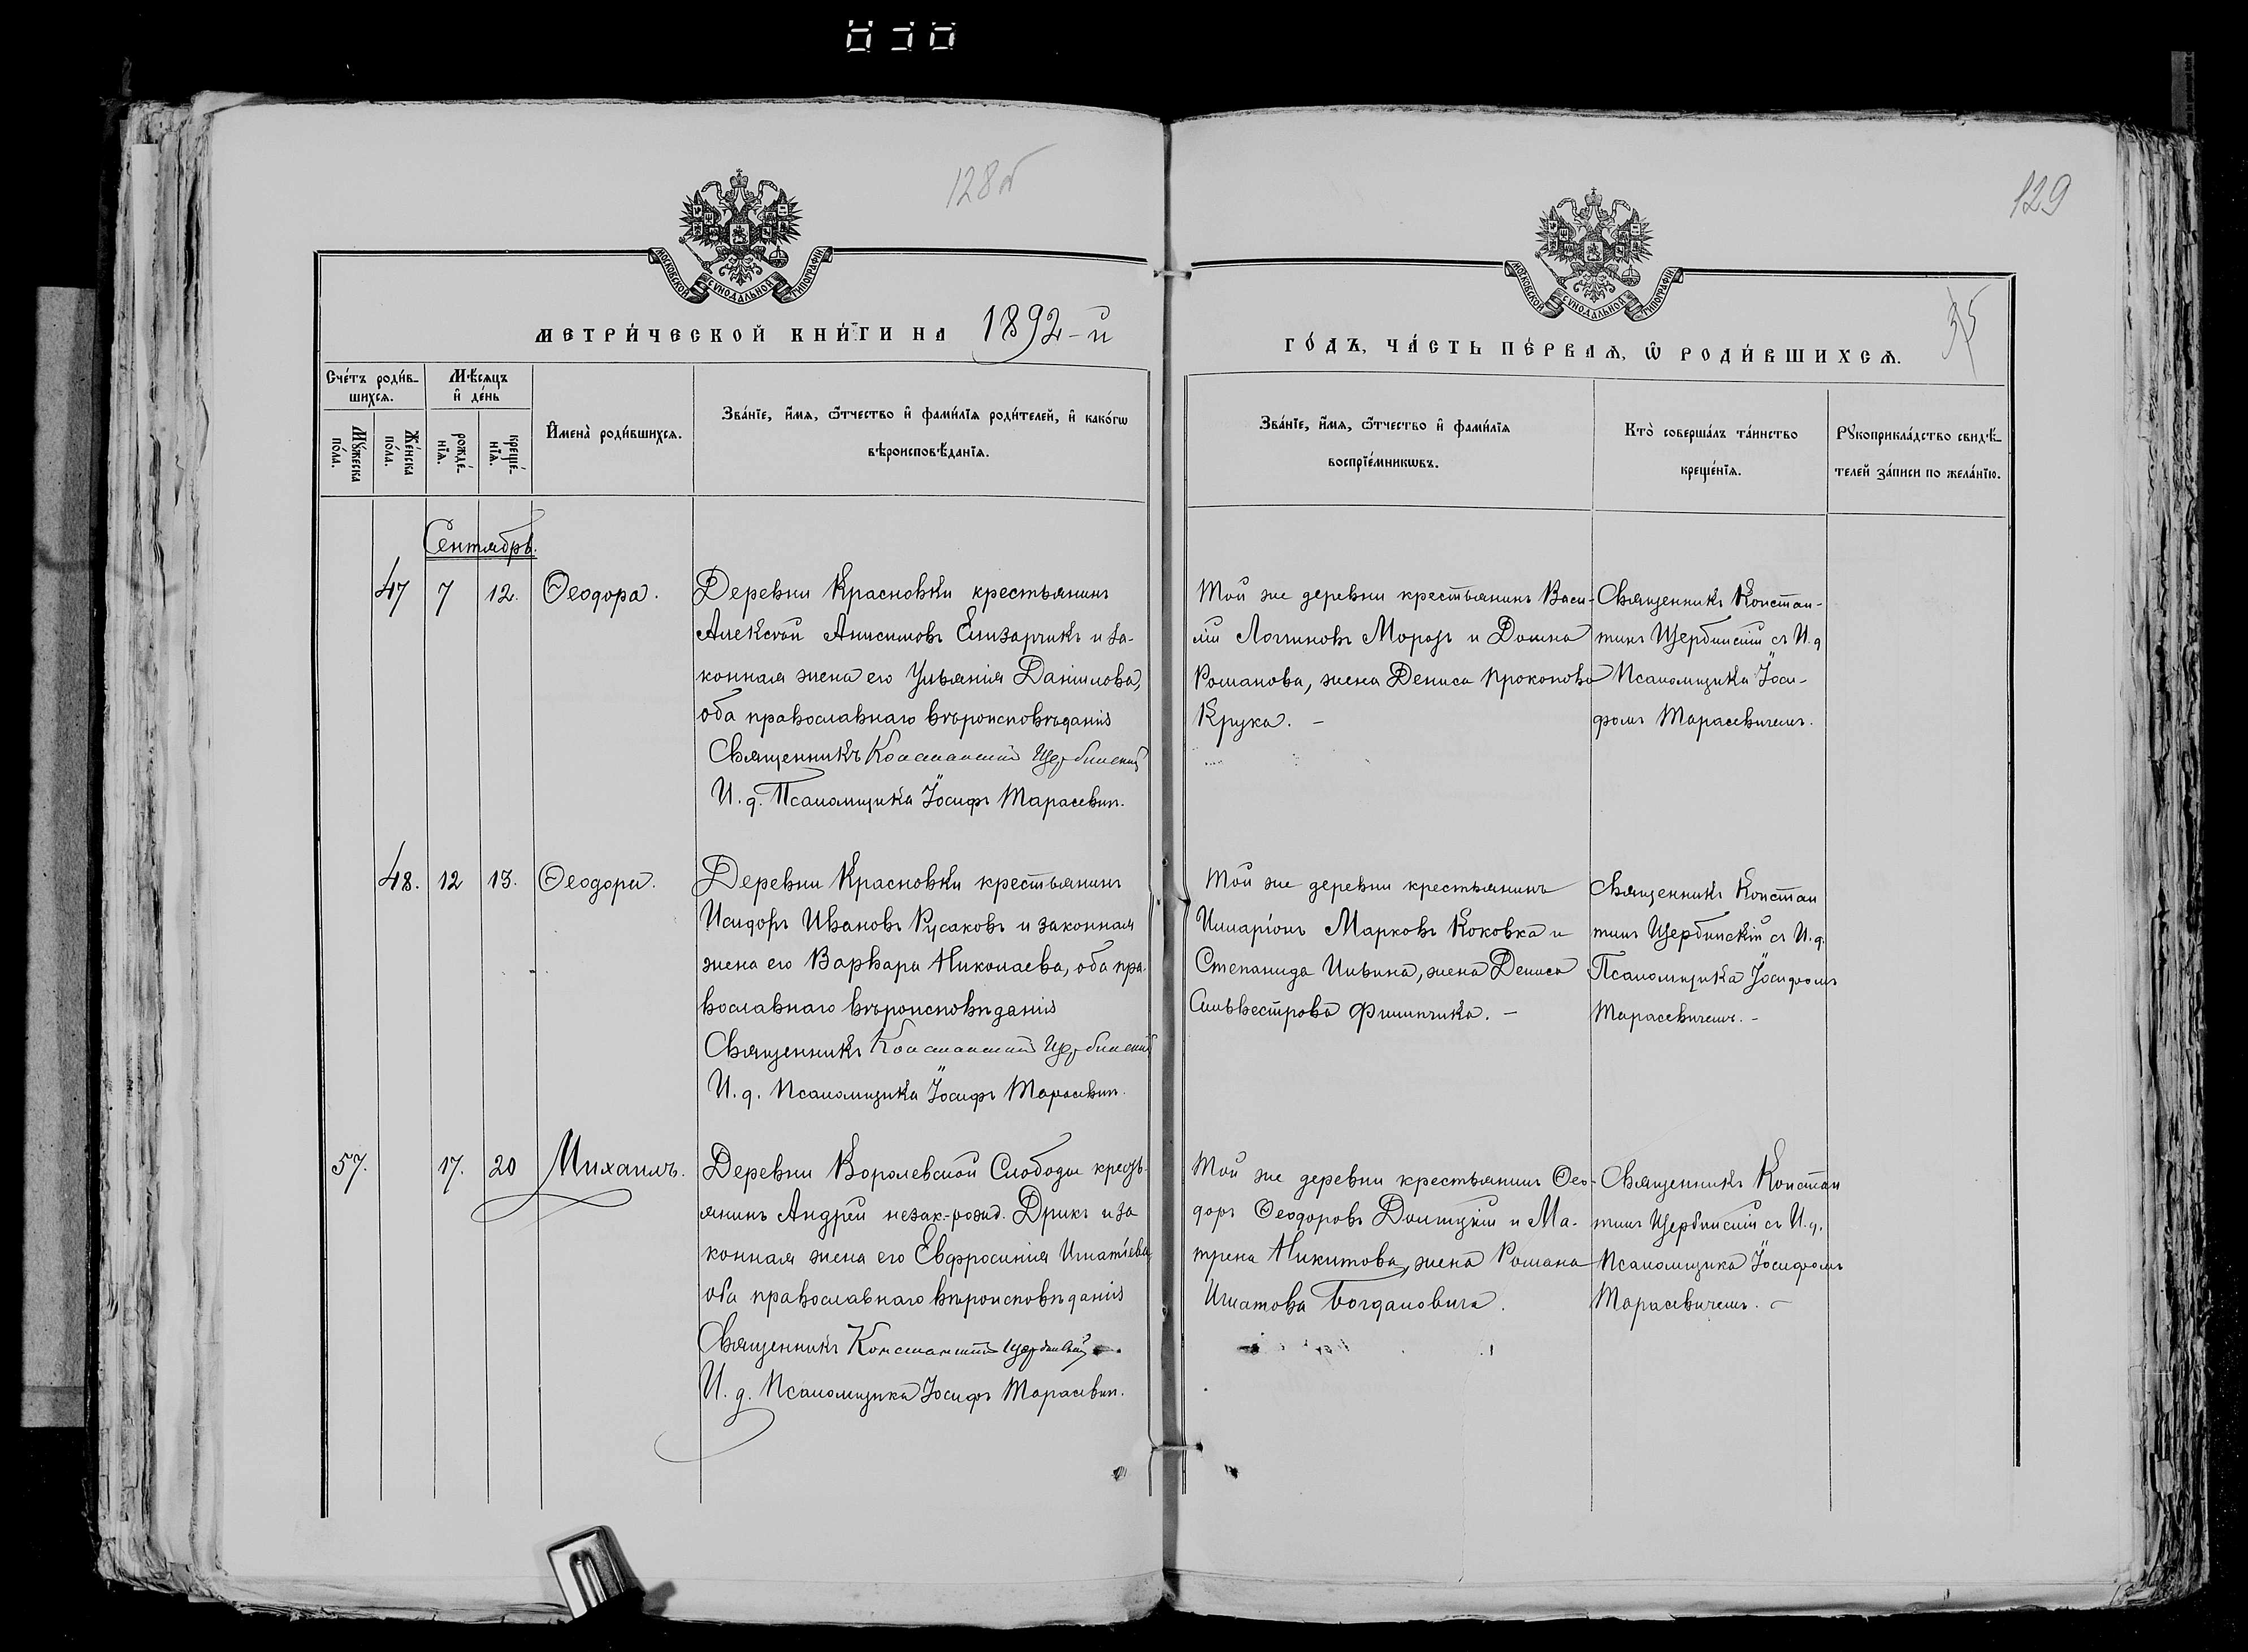 128об
129
МОСКОВСКОЙ СУНОДАЛЬНОЙ ТИПОГРАФІИ
МОСКОВСКОЙ СУНОДАЛЬНОЙ ТИПОГРАФІИ
МЕТРИ́ЧЕСКОЙ КНИ́ГИ НА 1892-й
ГО́ДЪ, ЧА́СТЬ ПЕ́РВАѦ, Ѡ РОДИ́ВШИХСѦ.
35
Сче́тъ роди́в-
шихсѧ.
Мꙋ́жеска по́ла.
Же́нска по́ла.
Мѣ́сѧцъ
и҆ де́нь
рожде́-
нїѧ.
креще́-
нїѧ.
И҆мена̀ роди́вшихсѧ.
Зва́нїе, и҆́мѧ, ѻ҆́тчество и҆ фами́лїѧ роди́телей, и҆ како́гѡ
вѣроисповѣ́данїѧ.
Зва́нїе, и҆́мѧ, ѻ҆́тчество и҆ фами́лїѧ
воспрїе́мникѡвъ.
Кто̀ соверша́лъ та́инство
креще́нїѧ.
Рꙋкоприкла́дство свидѣ́-
телей за́писи по жела́нїю.
Сентябрь.
47 7 12. Ѳеодора.
Деревни Красновки крестьянинъ
Алексѣй Анисимовъ Елизарчикъ и за-
конная жена его Ульянія Даніилова,
оба православнаго вѣроисповѣданія
Священникъ Константинъ Щербинскій
И. д. Псаломщика Іосифъ Тарасевич.
Той же деревни крестьянинъ Васи-
лій Логиновъ Морозъ и Домна
Романова, жена Дениса Прокопова
Крука. -
Священникъ Констан-
тинъ Щербинскій съ И. д
Псаломщика Іоси-
фомъ Тарасевичемъ.
48. 12 13. Ѳеодора.
Деревни Красновки крестьянинъ
Исидоръ Ивановъ Русаковъ и законная
жена его Варвара Николаева, оба пра-
вославнаго вѣроисповѣданія
Священникъ Константинъ Щербинскій
И. д. Псаломщика Іосифъ Тарасевич.
Той же деревни крестьянинъ
Илларіонъ Марковъ Коковка и
Степанида Ильина, жена Дениса
Сильвестрова Филипчика. -
Священникъ Констан
тинъ Щербинскій съ И. д.
Псаломщика Іосифомъ
Тарасевичемъ. -
57. 17. 20 Михаилъ.
Деревни Королевской Слободы кресть-
янинъ Андрей незак.-рожд. Дрикъ и за
конная жена его Евфросинія Игнатіева
оба православнаго вѣроисповѣданія
Священникъ Константинъ Щербинскій
И. д. Псаломщика Іосифъ Тарасевич.
Той же деревни крестьянинъ Ѳео-
доръ Ѳеодоровъ Долицкій и Ма-
трена Никитова, жена Романа
Игнатова Богдановича.
Священникъ Констан
тинъ Щербинскій съ И. д.
Псаломщика Іосифомъ
Тарасевичемъ. -